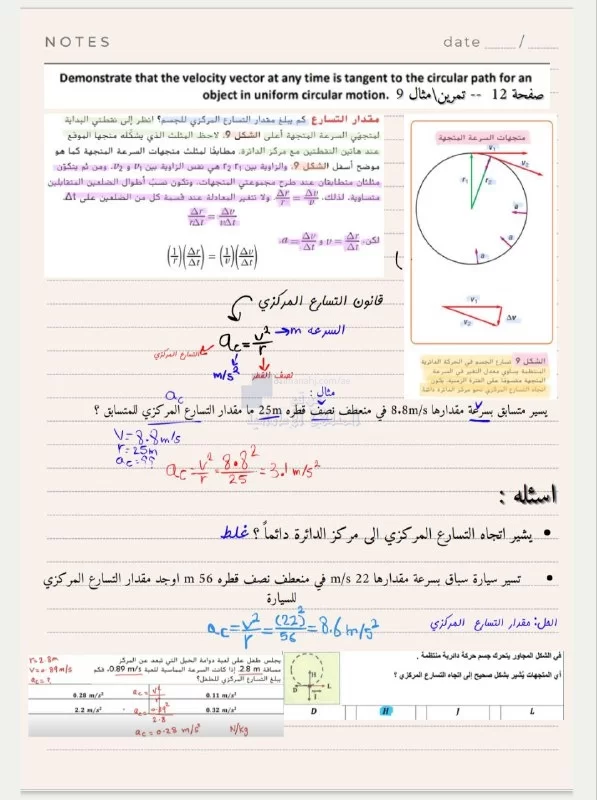 NOTES
date ____/____
Demonstrate that the velocity vector at any time is tangent to the circular path for an
object in uniform circular motion. صفحة 12 -- تمرين\مثال 9
مقدار التسارع كم يبلغ مقدار التسارع المركزي للجسم؟ انظر إلى نقطتي البداية
لمتجهَي السرعة المتجهة أعلى الشكل 9. لاحظ المثلث الذي يشكّله منجها الموقع
عند هاتين النقطتين مع مركز الدائرة. مطابقًا لمثلث متجهات السرعة المتجهة كما هو
موضح أسفل الشكل 9. والزاوية بين r₁ و r₂ هي نفس الزاوية بين v₁ و v₂. ومن ثم يتكوّن
مثلثان متطابقان عند طرح مجموعتي المتجهات، وتكون نسب أطوال الضلعين المتقابلين
متساوية. لذلك، Δr/r = Δv/v. ولا تتغير المعادلة عند قسمة كل من الضلعين على Δt.
Δr/rΔt = Δv/vΔt
لكن، v = Δr/Δt و a = Δv/Δt
(1/r)(Δr/Δt) = (1/v)(Δv/Δt)
متجهات السرعة المتجهة
v₁
v₂
r₁
r₂
a
a
a
v₁
v₂
Δv
الشكل 9 تسارع الجسم في الحركة الدائرية
المنتظمة يساوي معدل التغير في السرعة
المتجهة مقسومًا على الفترة الزمنية. يكون
اتجاه التسارع المركزي نحو مركز الدائرة دائمًا
قانون التسارع المركزي
a_c = v²/r → m السرعه
التسارع المركزي
m/s²
نصف القطر
مثال :
a_c
v
يسير متسابق بسرعة مقدارها 8.8m/s في منعطف نصف قطره 25m ما مقدار التسارع المركزي للمتسابق ؟
V = 8.8 m/s
r = 25m
a_c = ??
a_c = v²/r = 8.8²/25 = 3.1 m/s²
اسئله :
• يشير اتجاه التسارع المركزي الى مركز الدائرة دائماً ؟ غلط
• تسير سيارة سباق بسرعة مقدارها 22 m/s في منعطف نصف قطره 56 m اوجد مقدار التسارع المركزي
للسيارة
الحل: مقدار التسارع المركزي
a_c = v²/r = (22)²/56 = 8.6 m/s²
r = 2.8m
v = 0.89 m/s
a_c = ?
يجلس طفل على لعبة دوامة الخيل التي تبعد عن المركز
مسافة 2.8 m. إذا كانت السرعة المماسية للعبة 0.89 m/s، فكم
يبلغ التسارع المركزي للطفل؟
0.28 m/s²
0.11 m/s²
2.2 m/s²
0.32 m/s²
a_c = v²/r
a_c = 0.89²/2.8
a_c = 0.28 m/s²
N/kg
في الشكل المجاور يتحرك جسم حركة دائرية منتظمة .
أي المتجهات يُشير بشكل صحيح إلى اتجاه التسارع المركزي ؟
H
D
L
J
D
H
J
L